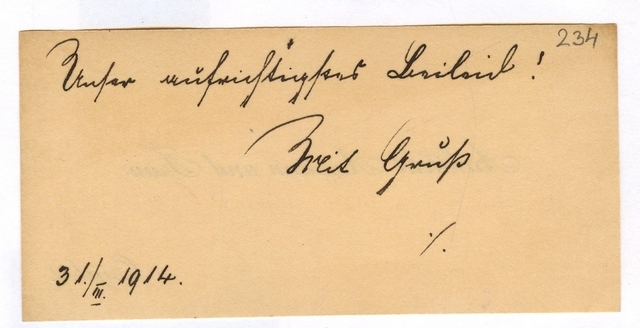 234
Unser aufrichtigstes Beileid!
Mit Gruß
./.
31./III. 1914.